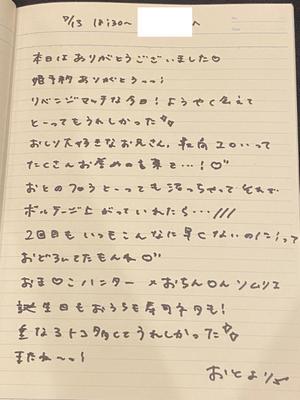 9/13 18:30〜 へ
本日はありがとうございました♡
婚予約ありがとうっっ!
リベンジマッチな今日!ようやく会えて
と〜ってもうれしかった
おしり大好きなお兄さん。エロいって
たくさんお褒めの言葉で…!♡
おとのフロうと〜っても沼っちゃって それで
ボルテージ上がっていれたら…///
2回目もいつもこんなに早くないのに!って
おどろいてたもんね♡
おま♡こハンター × おちん〇ん ソムリエ
誕生日もおうちも寿司ネタも!
重なるトコ多くてうれしかった
またね〜っ!
おとより